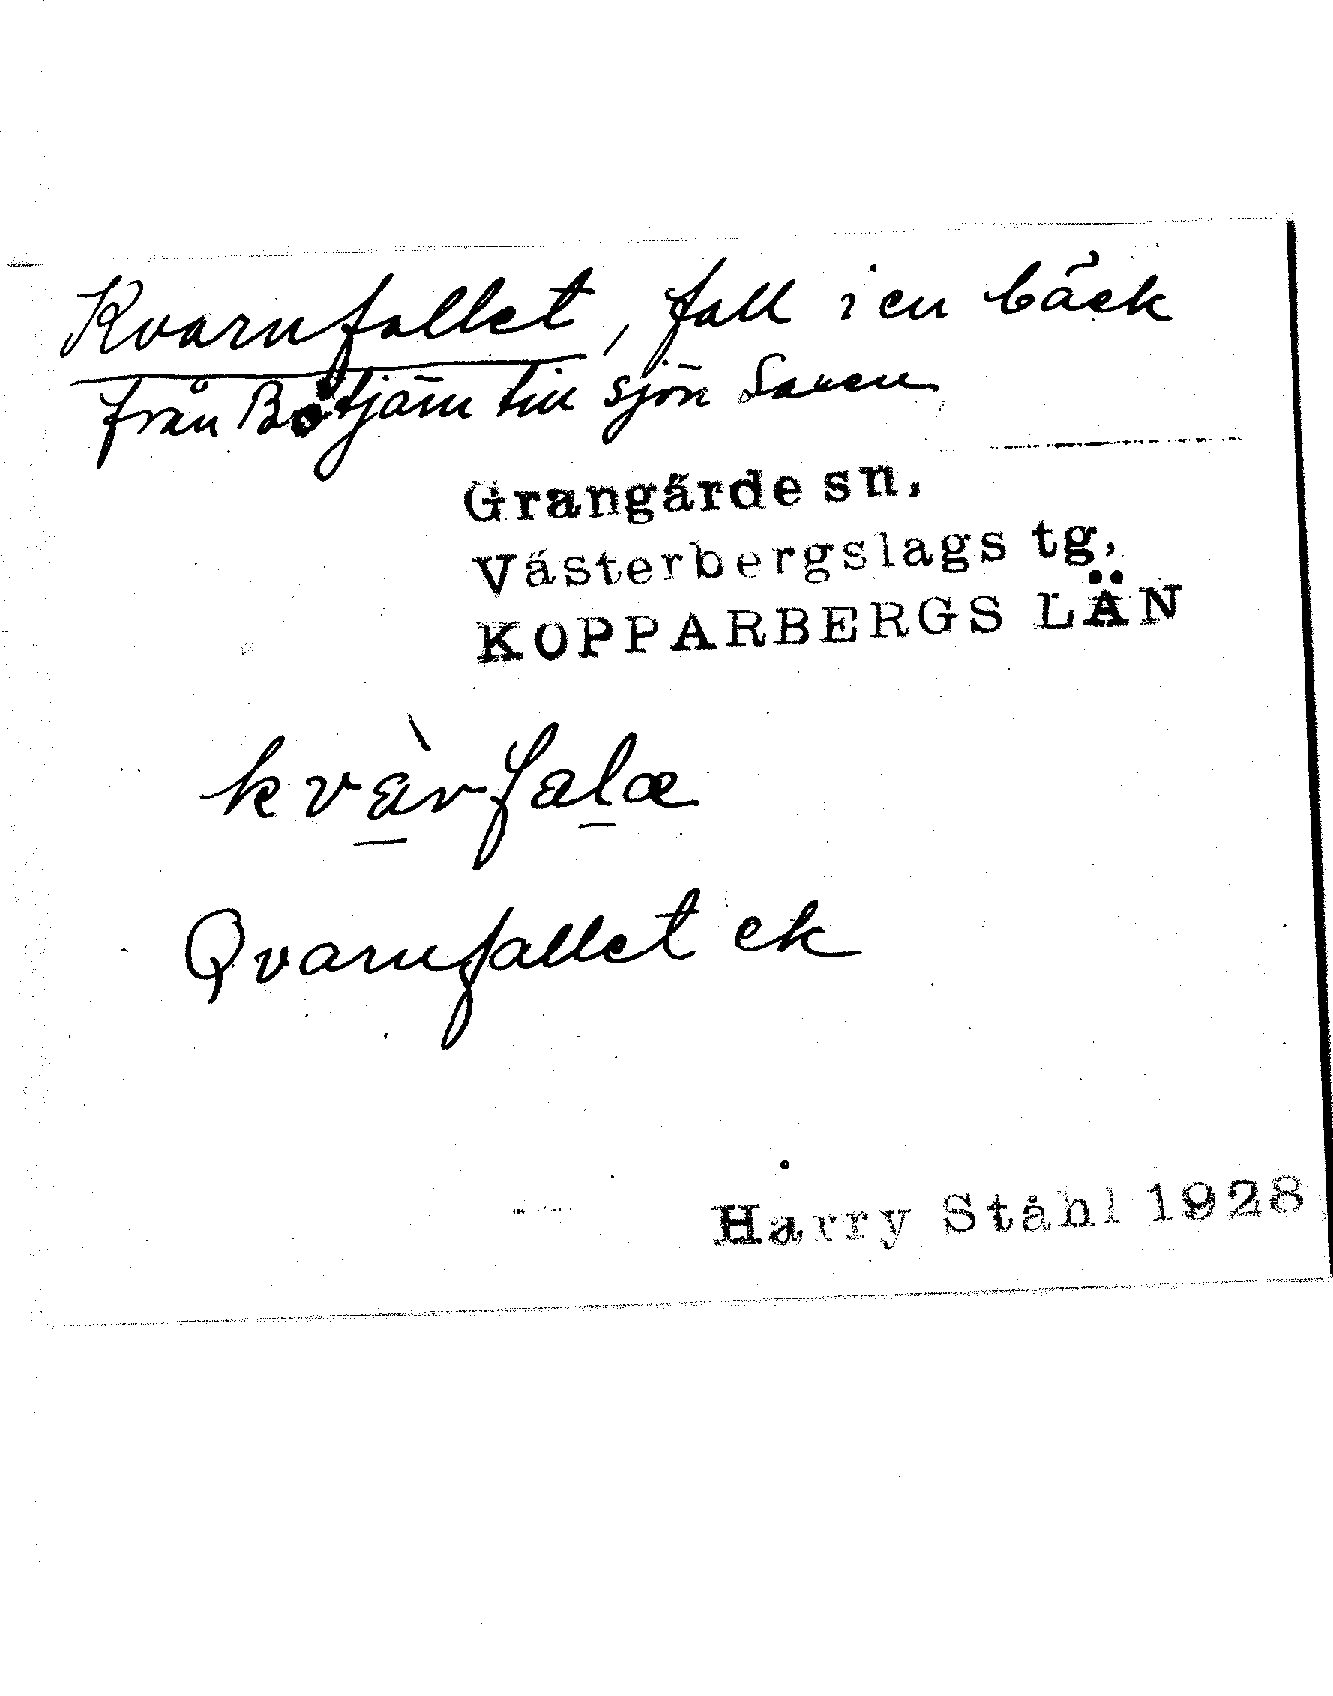 Kvarnfallet, fall i en bäck
från Båtjärn till sjön Saxen
Grangärde sn,
Västerbergslags tg,
KOPPARBERGS LÄN
kvàrfalæ
Qvarnfallet ek
Harry Ståhl 1928